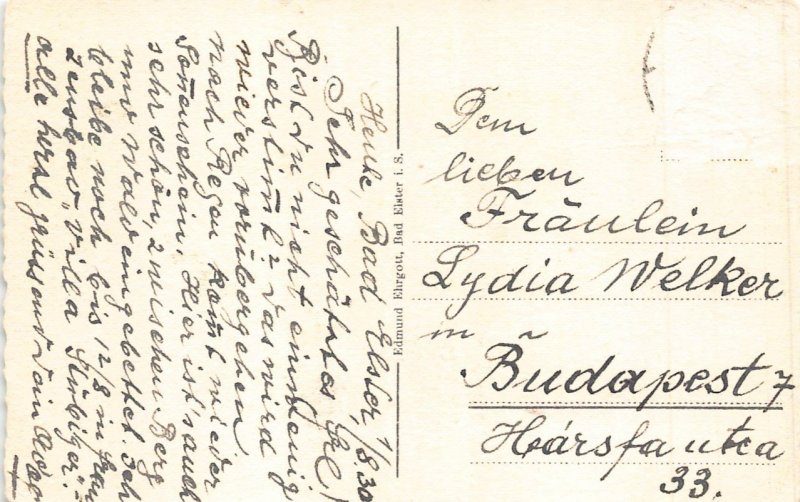 Heute, Bad Elster, 1/8.30
Sehr geschätztes Frl!
Bist du nicht ein wenig
verstimt? Das wird
wieder vorübergehen
nach Regen komt wieder
Sonenschein. Hier ist's auch
sehr schön, zwischen Berg
und Wald eingebettet. Ich
bleibe noch bis 12/8 in
"Villa
alle herzl. grüssend Dein
Edmund Ehrgott, Bad Elster i. S.
Dem
lieben
Fräulein
Lydia Welker
in
Budapest 7
Hársfa utca
33.